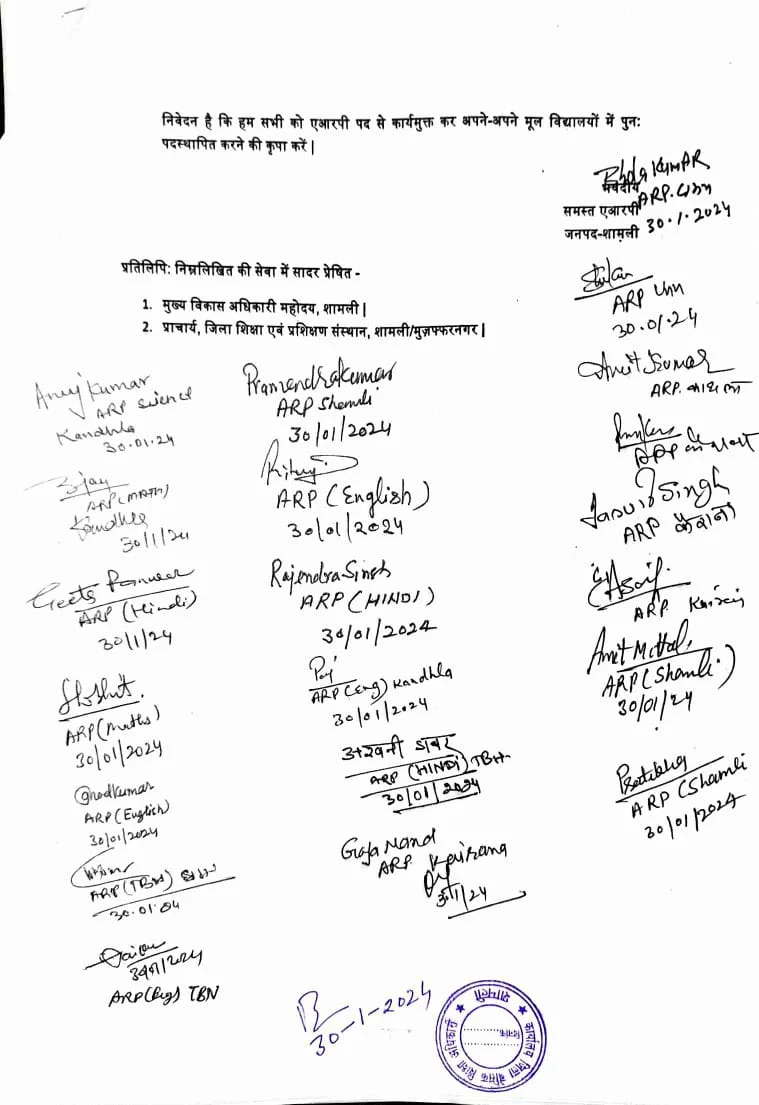 निवेदन है कि हम सभी को एआरपी पद से कार्यमुक्त कर अपने-अपने मूल विद्यालयों में पुनः
पदस्थापित करने की कृपा करें |
KUMAR
भवदीय
ARP.
समस्त एआरपी
जनपद-शामली
30.1.2024
प्रतिलिपि: निम्नलिखित की सेवा में सादर प्रेषित -
1. मुख्य विकास अधिकारी महोदय, शामली |
2. प्राचार्य, जिला शिक्षा एवं प्रशिक्षण संस्थान, शामली/मुज़फ्फरनगर |
ARP Unn
30.01.24
Amit Kumar
ARP. कांधला
ARP
Singh
ARP कैराना
ARP
Amit Mittal
ARP (Shamli)
30/01/24
Pratibha
ARP (Shamli
30/01/2024
Anuj Kumar
ARP Science
Kandhla
30.01.24
ARP (MATH)
Kandhla
30/1/24
Geeta
ARP (Hindi)
30/1/24
ARP (Maths)
30/01/2024
ARP (English)
30/01/2024
ARP (TBN)
30.01.24
ARP (Eng) TBN
Pramendra kumar
ARP Shamli
30/01/2024
ARP (English)
30/01/2024
Rajendra Singh
ARP (HINDI)
30/01/2024
ARP (Eng) Kandhla
30/01/2024
अश्वनी डाबर
ARP (HINDI) TBN
30/01/2024
Gaja Nand
ARP Kairana
30/1/24
30-1-2024
कार्यालय जिला बेसिक शिक्षा अधिकारी
शामली
दिनांक